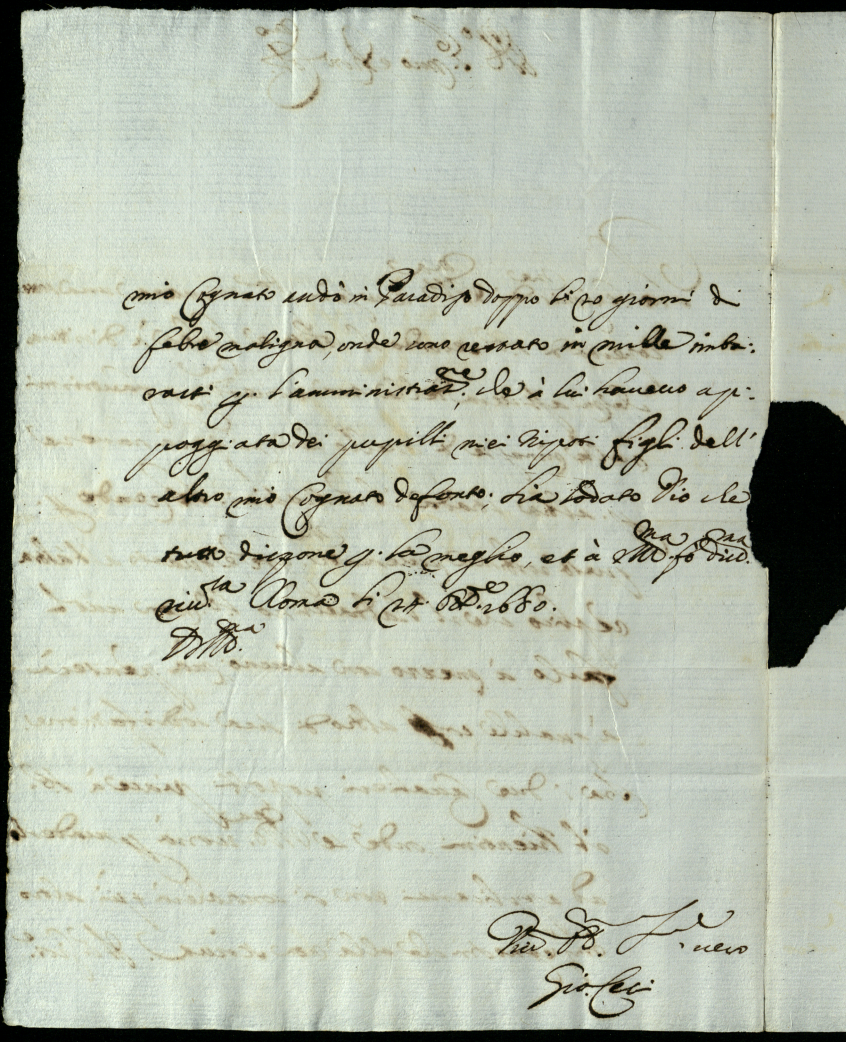 mio Cognato andò in Paradiso doppo li 20 giorni di
febre maligna, onde sono restato in mille imba:
razzi p. l'amministrat.ne, che à lui havevo ap:
poggiata dei pupilli miei Nipoti figli dell'
altro mio Cognato defonto; sia lodato Dio che
tutto dispone p. la meglio, et à
Roma li 8bre 1680.
D. V.
Gio: Ceci